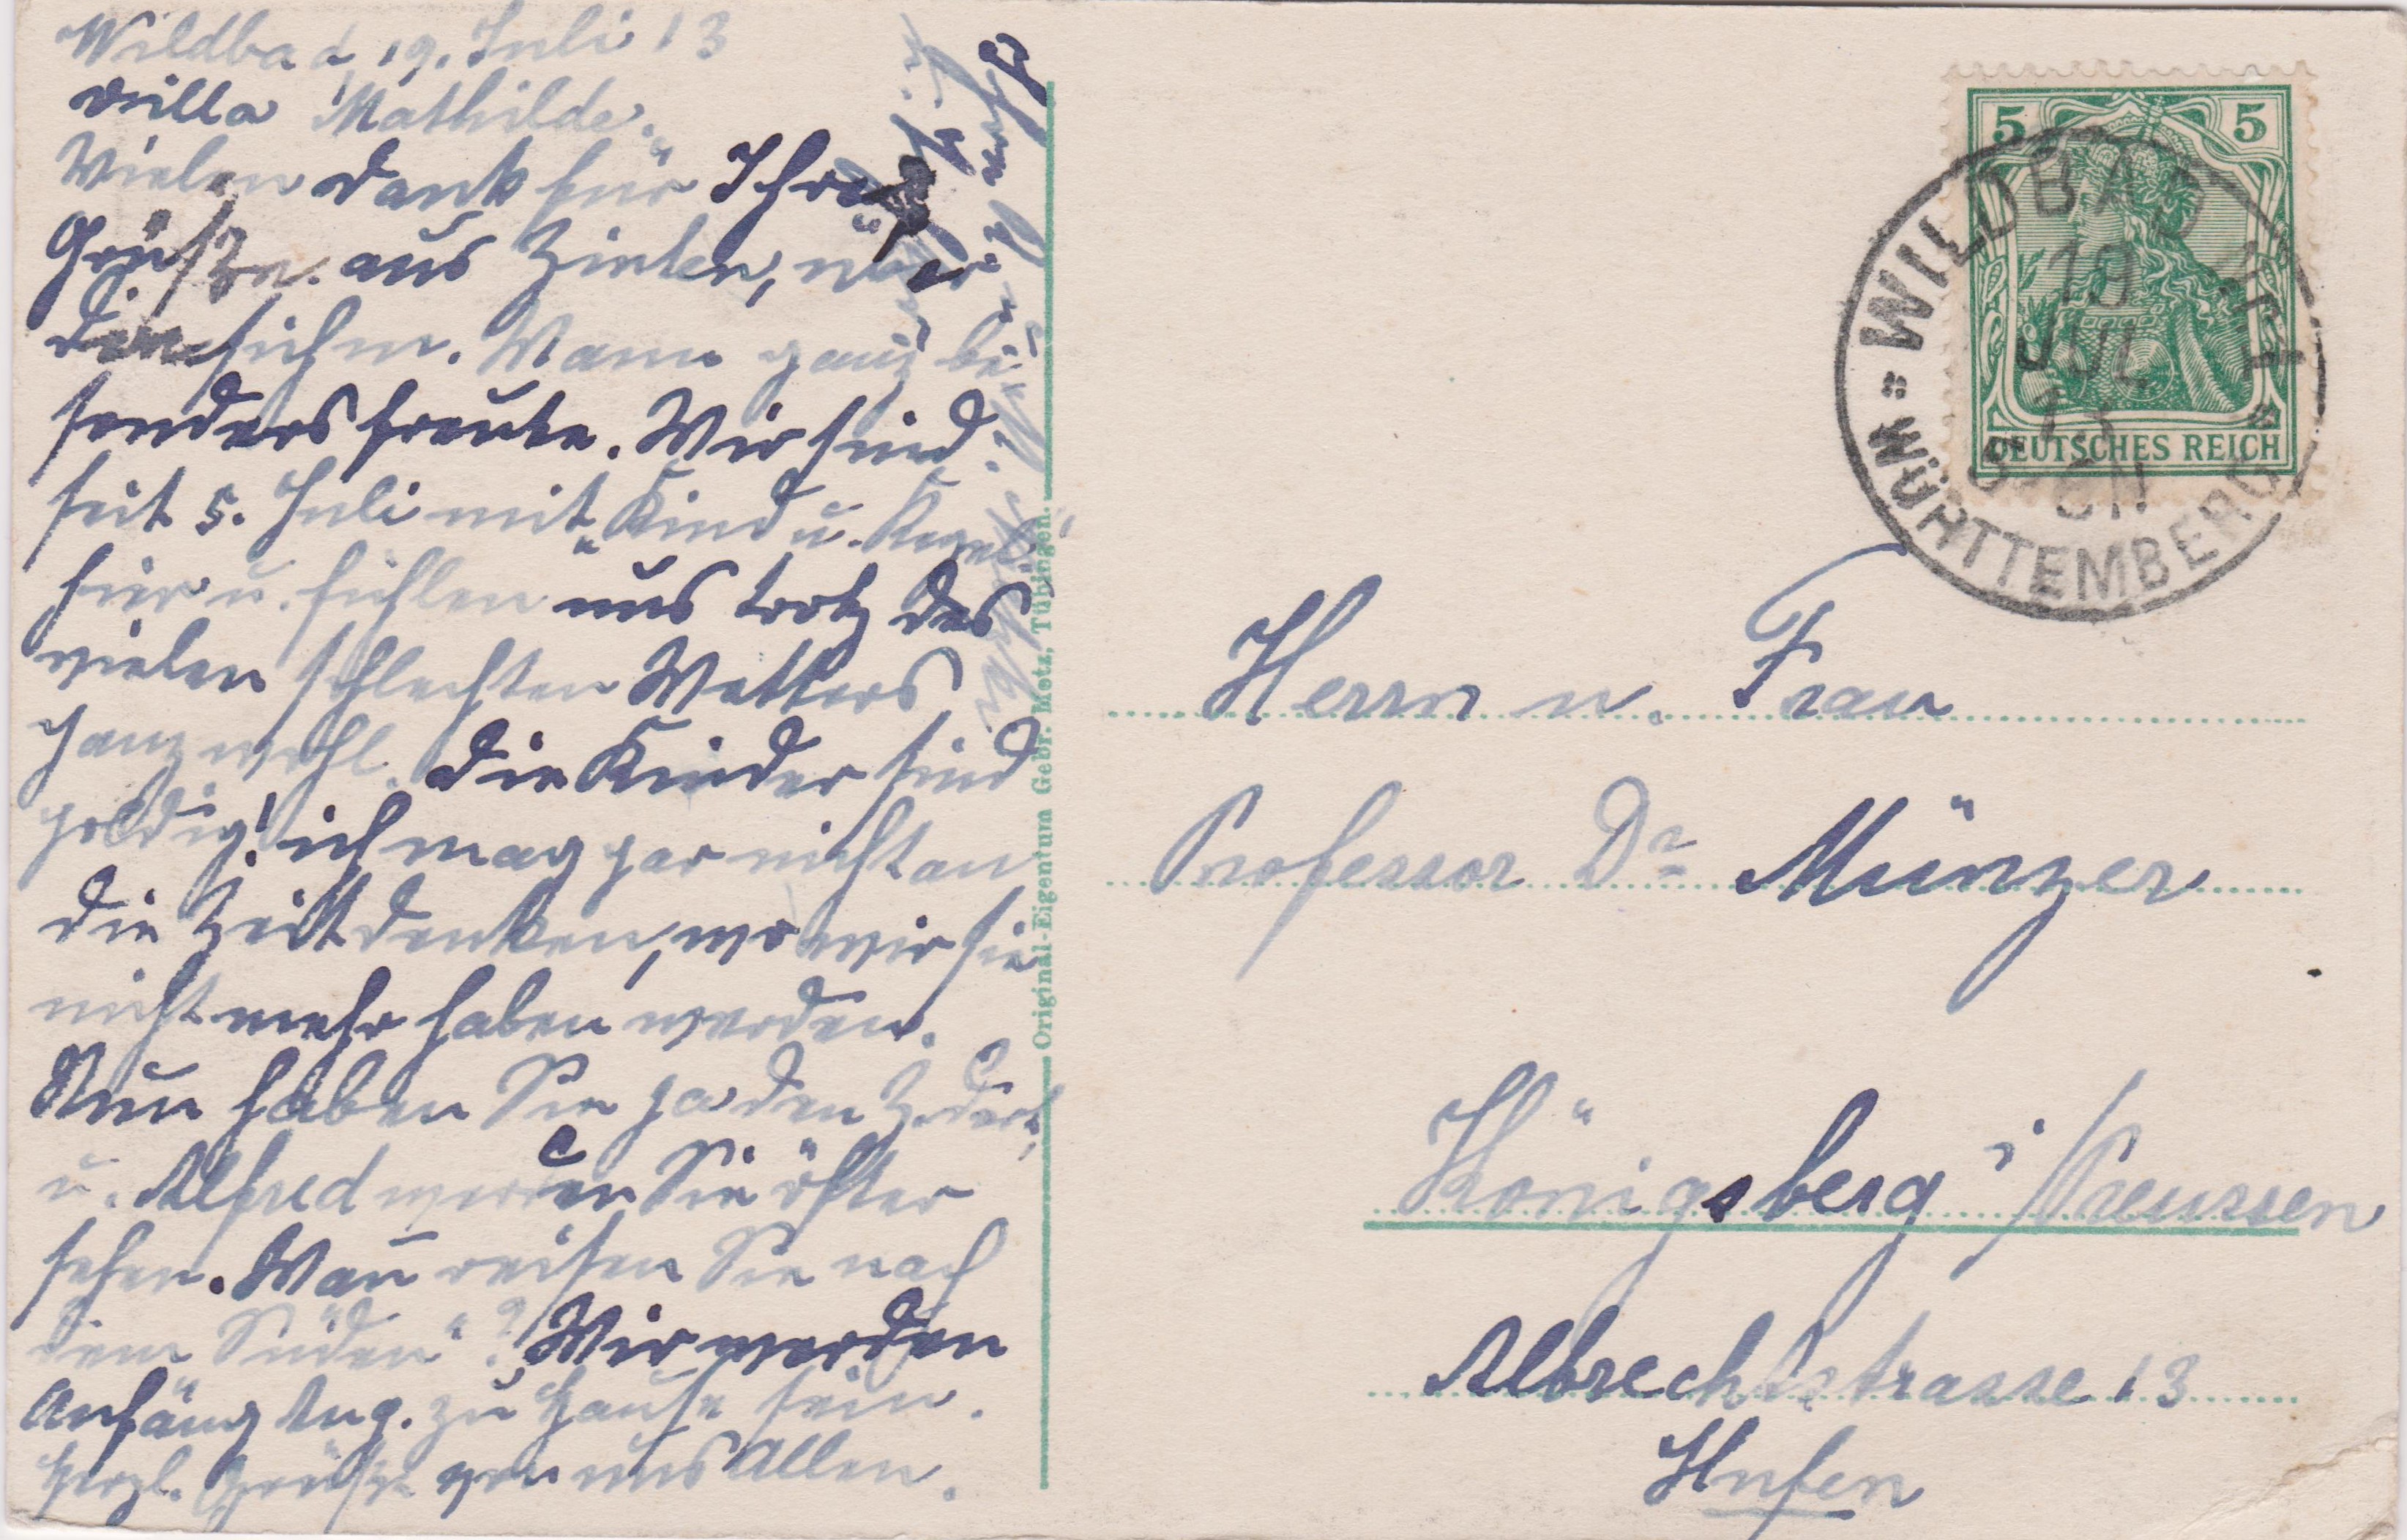 Wildbad, 19. Juli 13
Villa Mathilde.
Vielen Dank für Ihre
Grüße aus Zinten, über
die sich m. Mann ganz be-
sonders freute. Wir sind
seit 5. Juli mit „Kind u. Kegel"
hier u. fühlen uns trotz des
vielen schlechten Wetters
ganz wohl. Die Kinder sind
goldig! ich mag gar nicht an
die Zeit denken, wo wir sie
nicht mehr haben werden.
Nun haben Sie ja den
u. Alfred werden Sie öfter
sehen. Wann reisen Sie nach
dem Süden"? Wir werden
Anfang Aug. zu Hause sein.
Herzl. Grüße von uns Allen.
Original-Eigentum Gebr. Metz, Tübingen.
5 5
DEUTSCHES REICH
WILDBAD
19
JUL
13
WÜRTTEMBERG
Herrn u. Frau
Professor Dr Münzer
Königsberg i/Preussen
Albrechtstrasse 13
Hufen